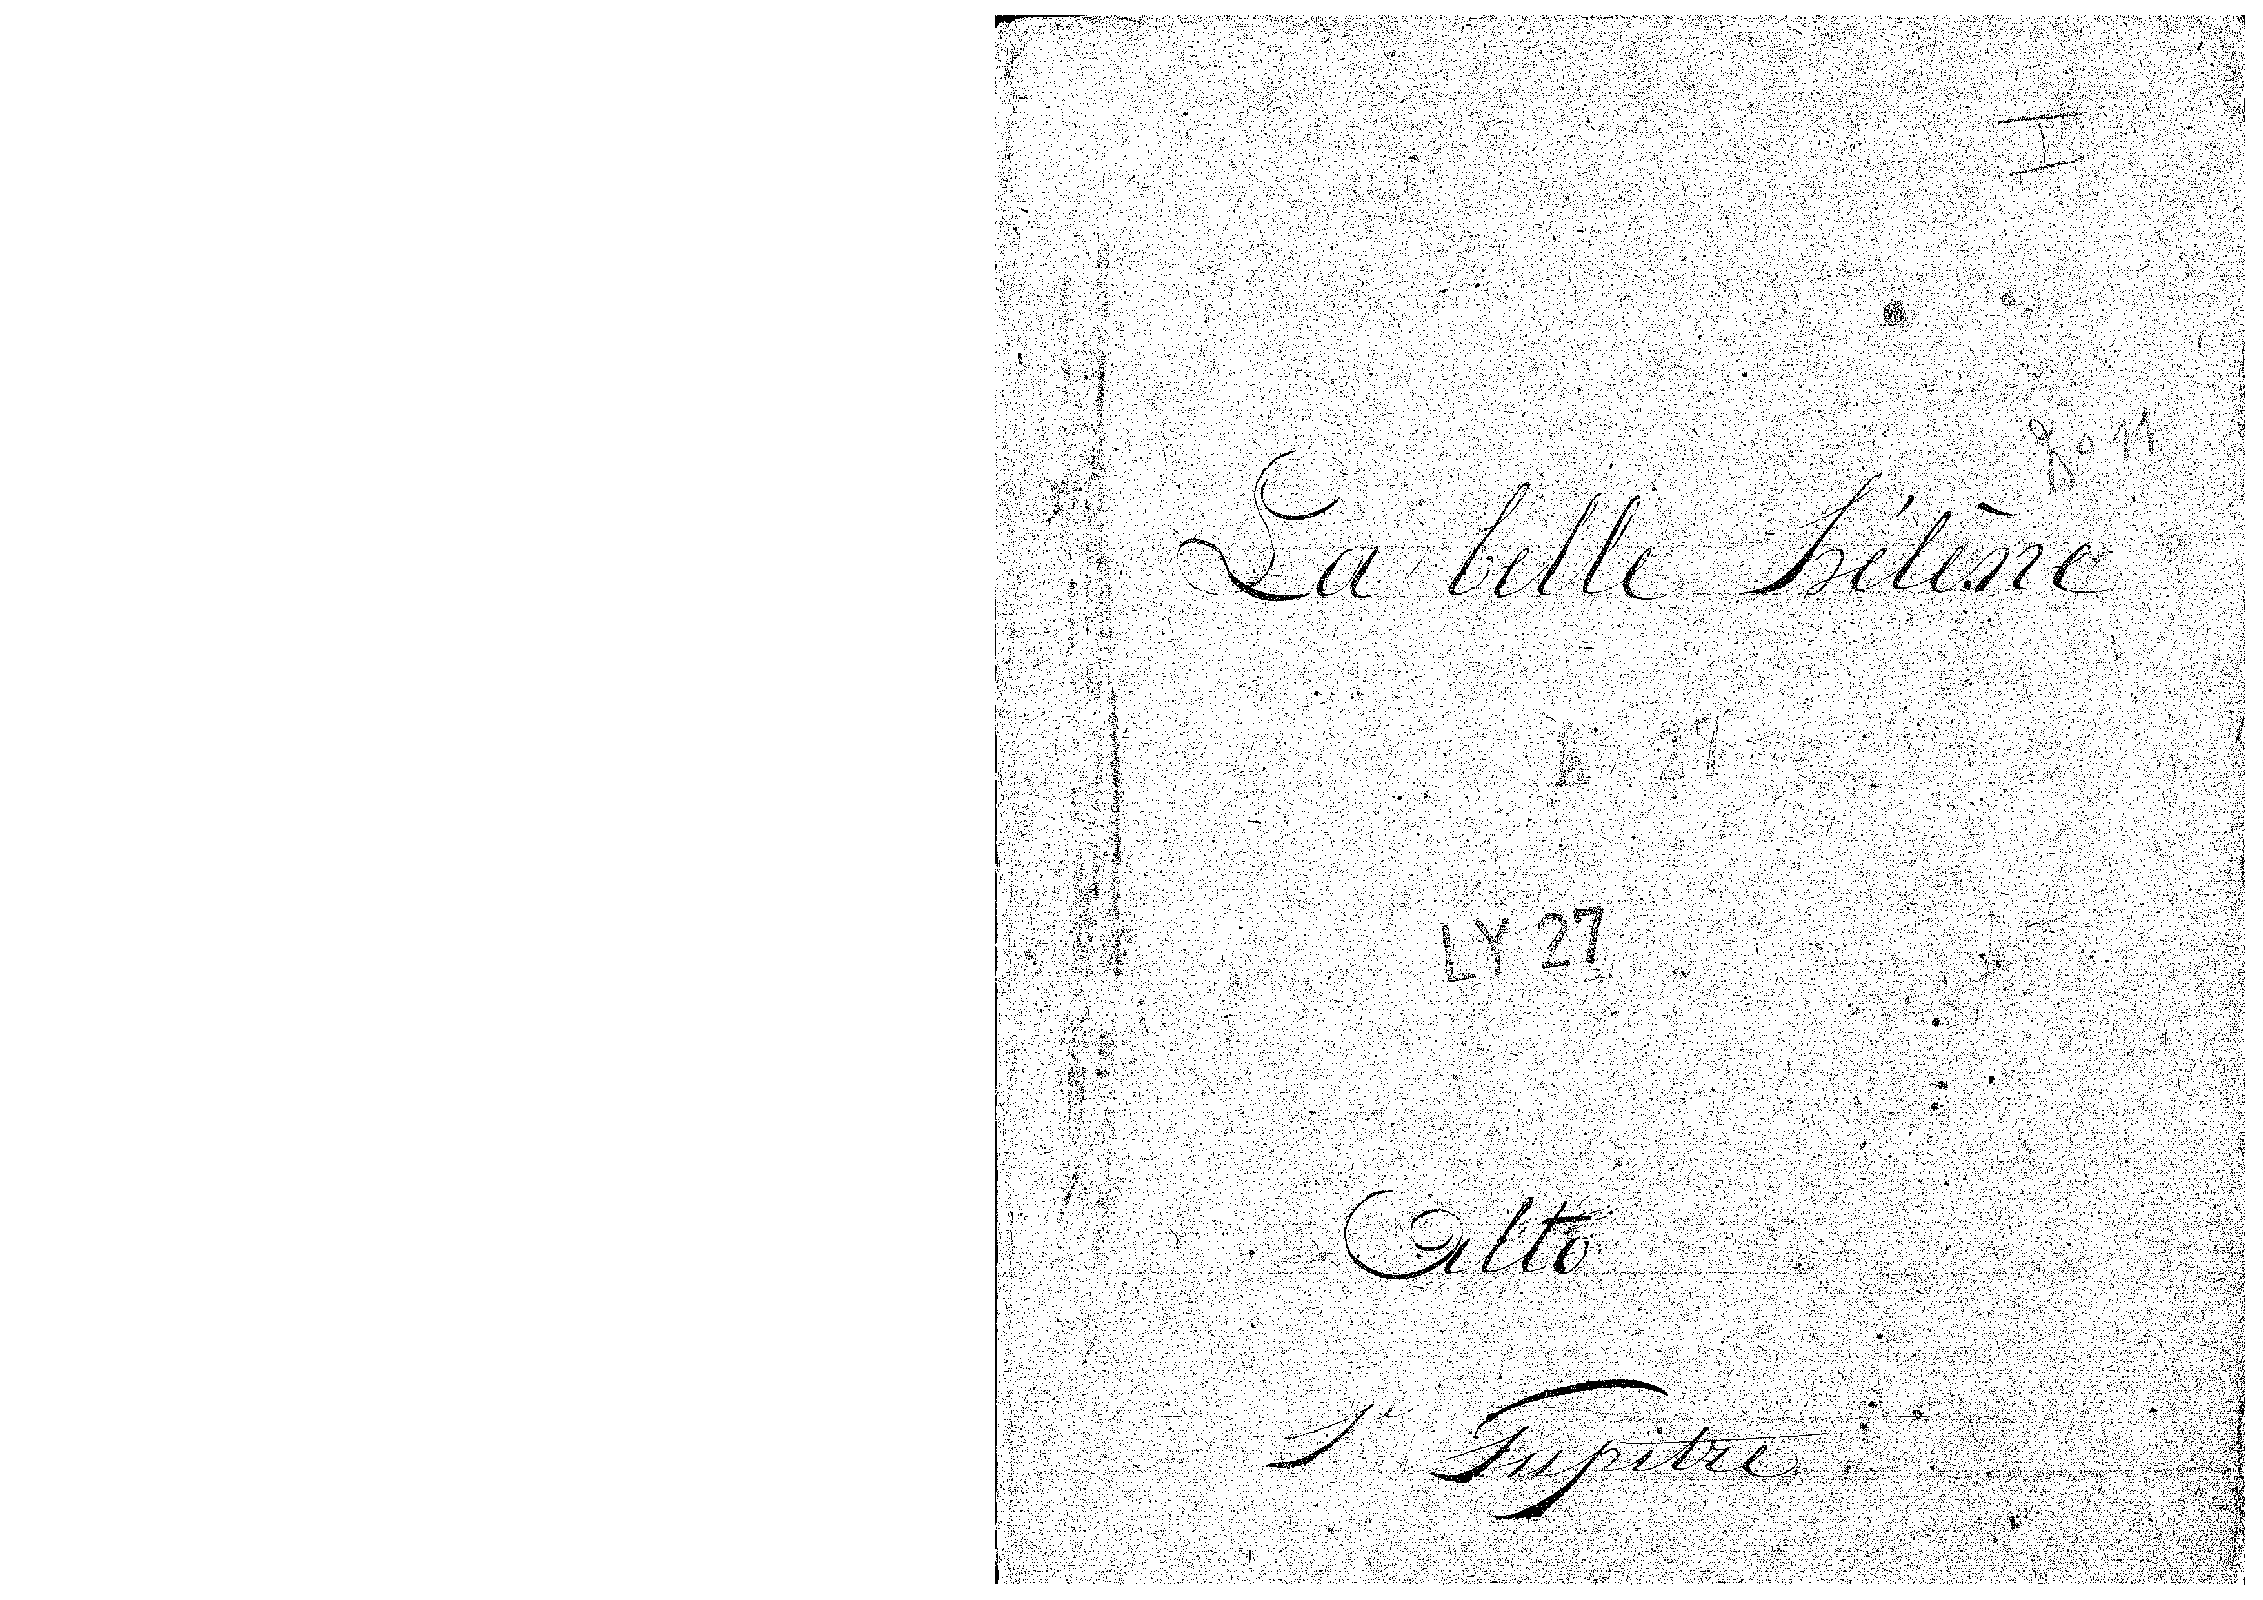 I
No 11
La belle hélène
LY 27
Alto
1r Pupitre